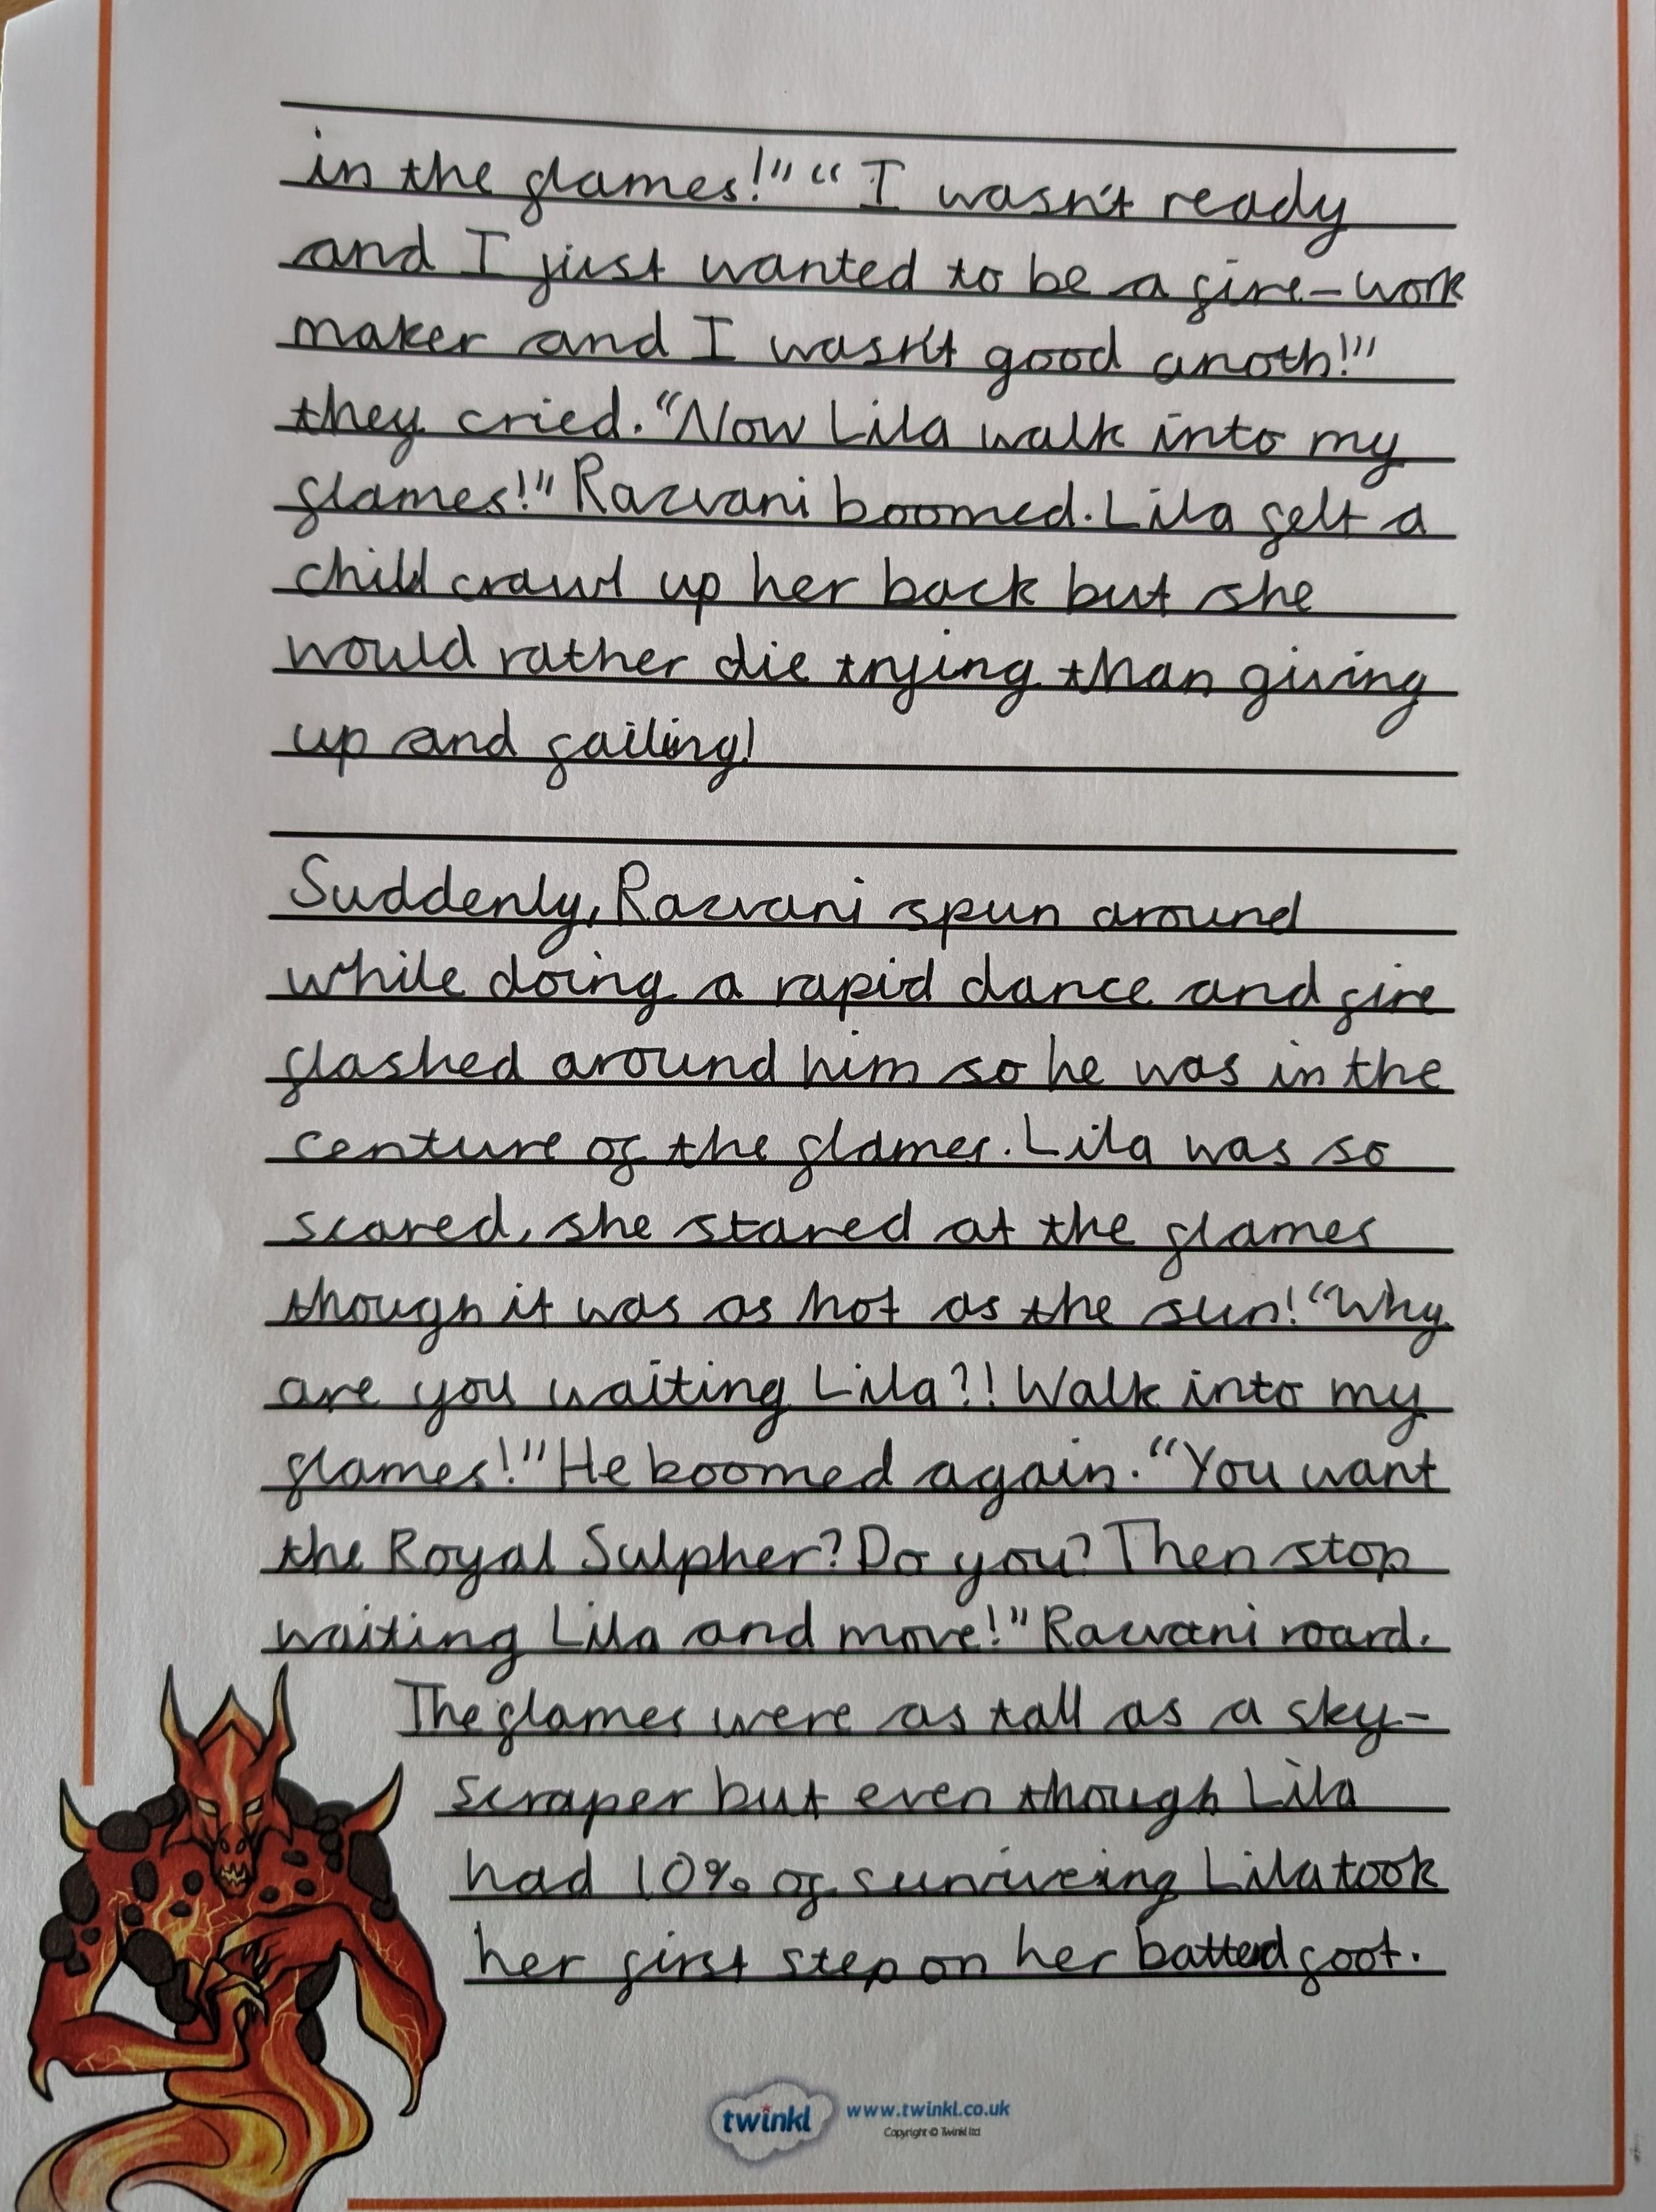 in the flames!" "I wasn't ready
and I just wanted to be a fire-work
maker and I wasn't good anoth!"
they cried. "Now Lila walk into my
flames!" Razvani boomed. Lila felt a
chill crawl up her back but she
would rather die trying than giving
up and failing!
Suddenly, Razvani spun around
while doing a rapid dance and fire
flashed around him so he was in the
centure of the flames. Lila was so
scared, she stared at the flames
though it was as hot as the sun! "Why
are you waiting Lila?! Walk into my
flames!" He boomed again. "You want
the Royal Sulpher? Do you? Then stop
waiting Lila and move!" Razvani roard.
The flames were as tall as a sky-
scraper but even though Lila
had 10% of surviveing Lila took
her first step on her batterd foot.
twinkl
www.twinkl.co.uk
Copyright © Twinkl Ltd